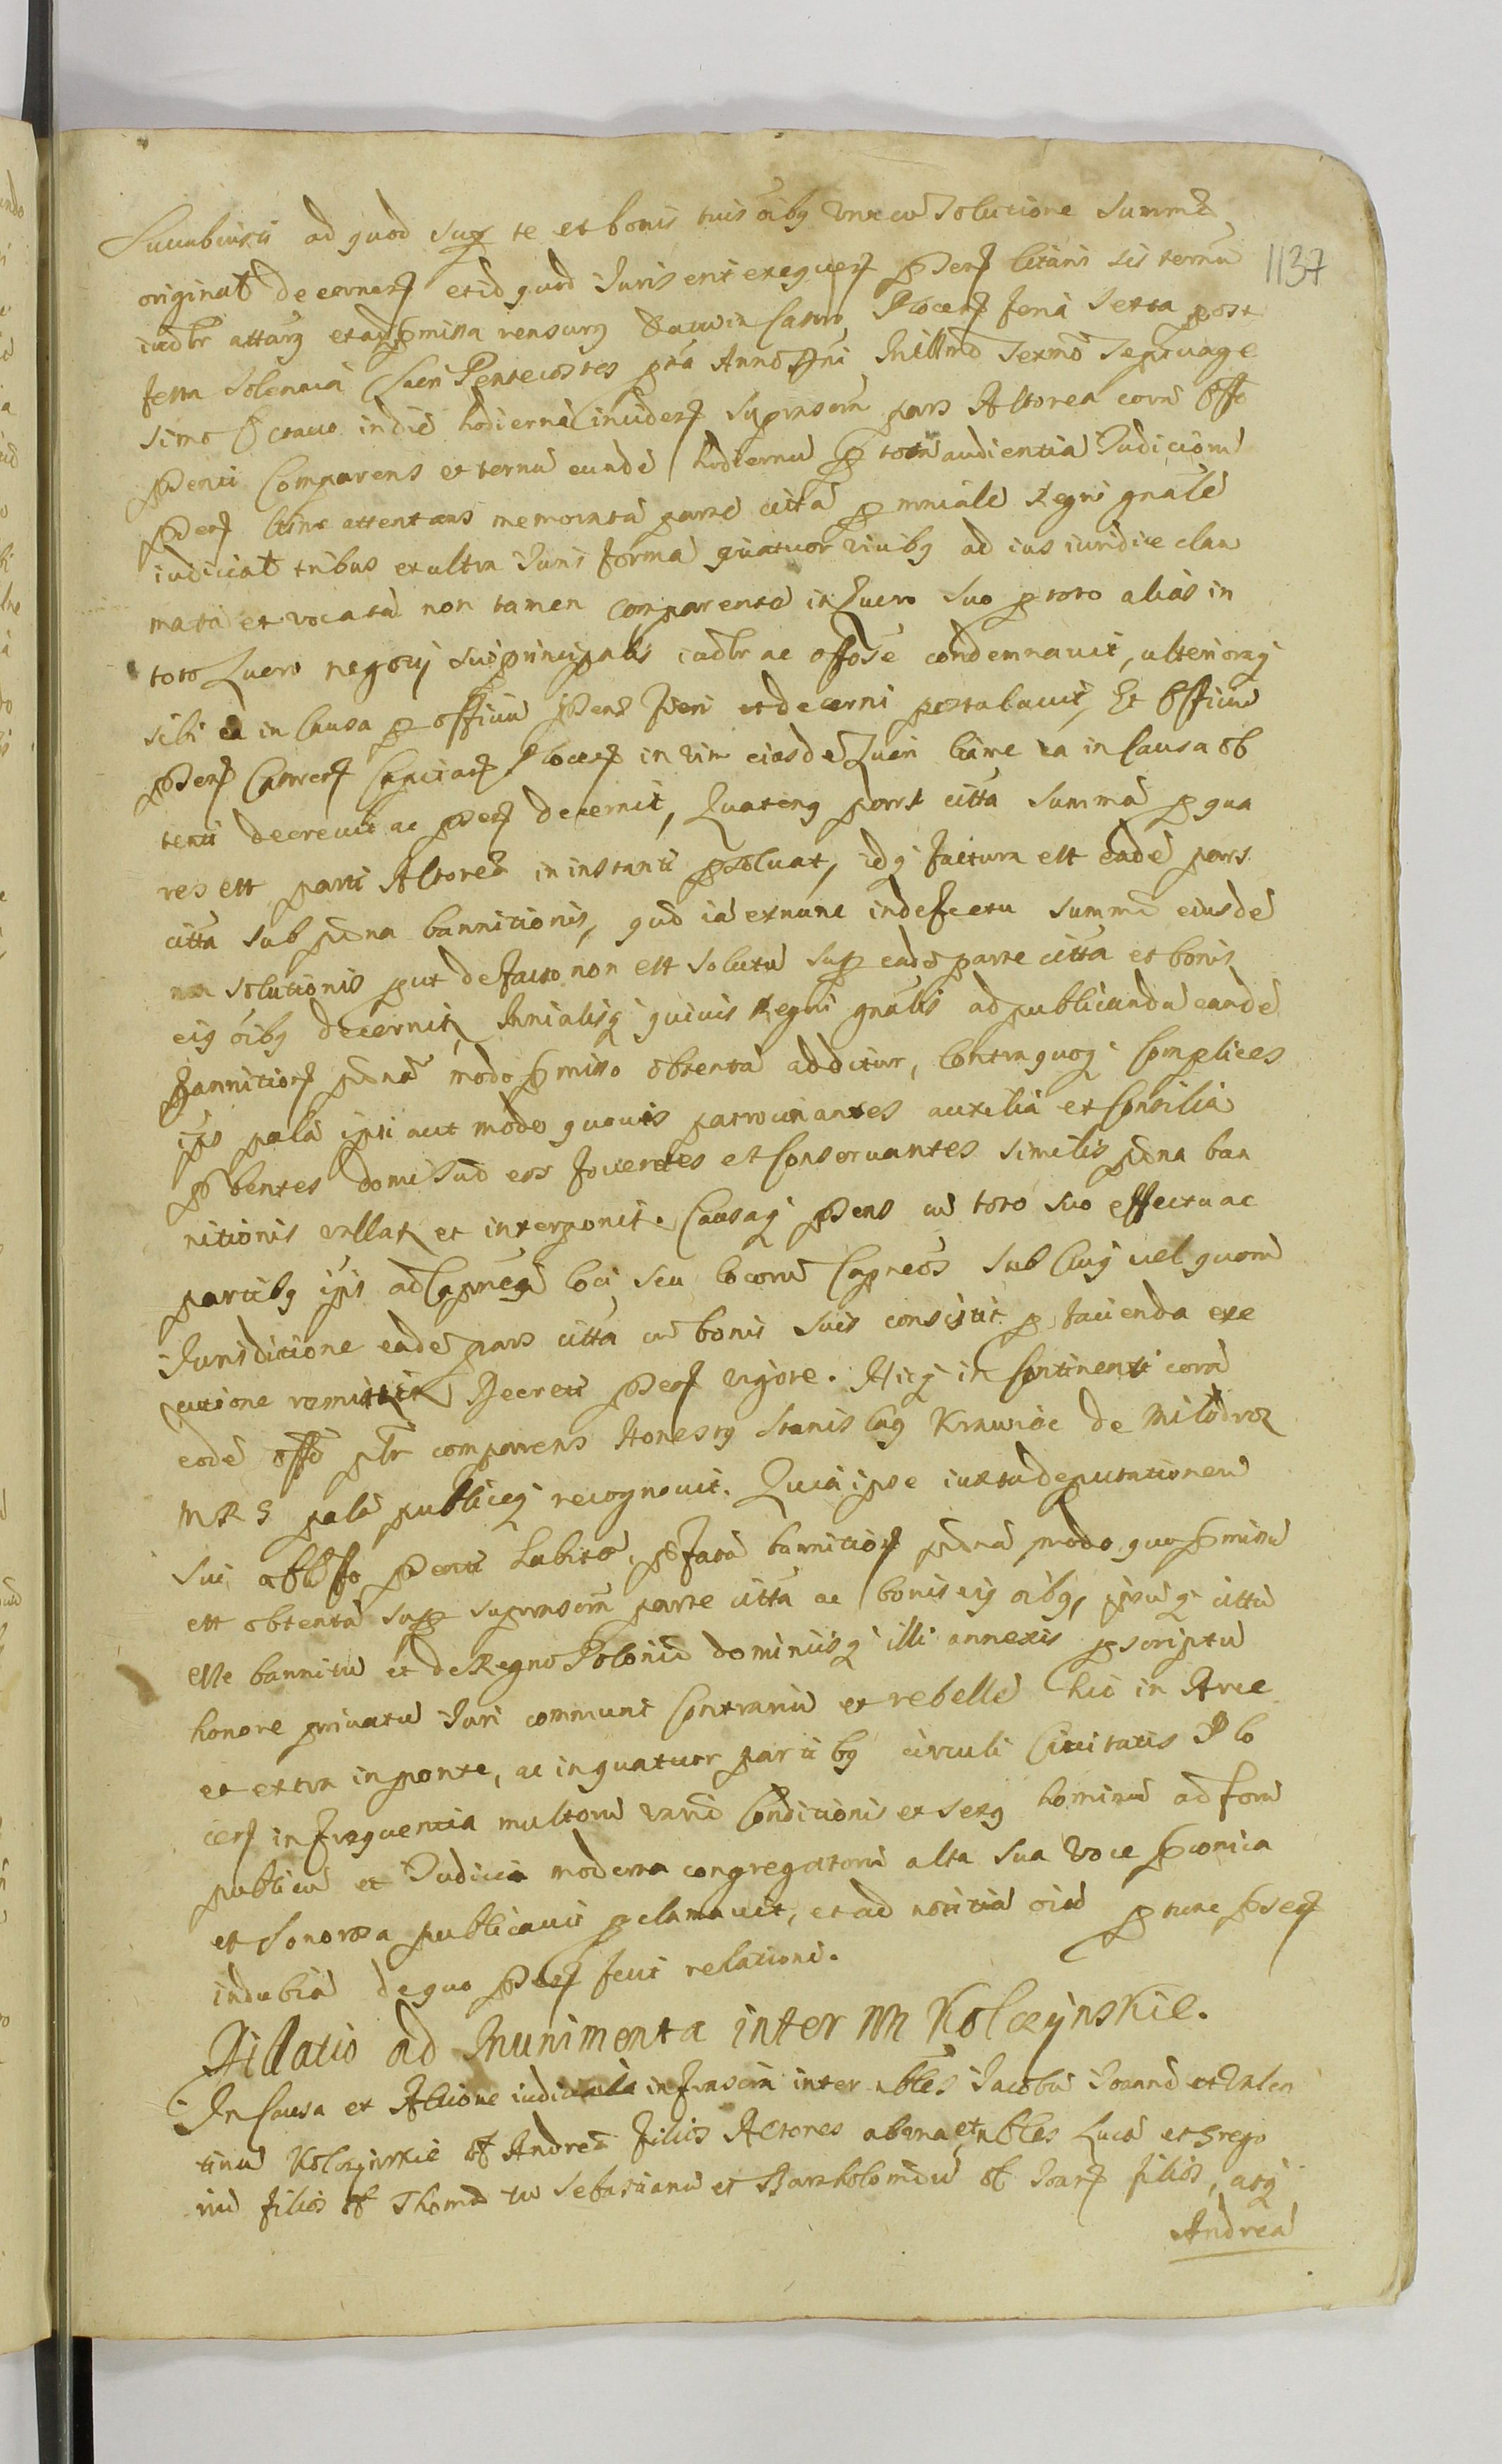 1137
Succubuisti ad quod sup te et bonis tuis oibq una cu solutione summæ
originat decernen et id quod Juris erit exequen pnen litanis sis termu
iudlr attenq et ad pmissa rensurq Datum in Castro Plocen feria sexta post
festa solennia Sacri Pentecostes pta Anno Dni Millmo sexmo septuage
simo Octavo in die hodierna inciden suprascrn pars Actorea cora Offo
pnenti comparens et termu eunde hodiernu p tota audientia Judicioru
pnen bene attentans memorata parte citta p mniale Regni gnale
iudicial tribus et ultra Juris forma quatuor vicibq ad ius iuridice clam
mata et vocata non tamen comparente in lucro suo p toto alias in
toto lucro negotij sui principalis iudlr ac offose condemnavit, ulteriorq
sibi ea in Causa p officiu pnens fieri et decerni postulavit, Et Officiu
pnen Castren Capitan Plocen in vim eiusde lucri bene ea in Causa ob
tenti decrevit ac pnen decernit, Quatenq pars citta summa p qua
res est parti Actoreæ in instanti psolvat, idq factura est eade pars
citta sub pæna bannitionis, qud ia exnunc in defectu summæ eiusde
non solutionis put de facto non est solutu sup eade parte citta et bonis
eiq oibq decernit, Mnialisq quivis Regni gnalis ad publicanda eande
Bannition pæna modo pmisso obtenta additur, Contra quoq complices
ipo pala ipsi aut modo quovis patrocinantes auxilia et Consilia
pbentes domi sud eos foventes et Conservantes similis pæna ban
nitionis vallat et interponit. Causaq pens cu toto suo effectu ac
partibq ipis ad Capnea loci seu locoru Capneos sub cuiq vel quoru
Jurisditione eade pars citta cu bonis suis consistit p facienda exe
cutione remittit Decreti pnen vigore. Hicq in Continenti cora
eode offo plr comparens Honestq Stanislaq Krawiec de Milodroz
MRG pala publiceq recognovit. Quia ipse iuxta deputationem
sui ab Offo pnenti habita, pfata bannition pæna modo quo pmissu
est obtenta sup suprascrn parte citta ac bonis eiq oibq, ipsuq cittu
esse bannitu et de Regno Poloniæ dominiisq illi annexis pscriptu
honore privatu Juri communi Contrariu et rebelle hic in Arce
et extra in ponte, ac in quatuor partibq circuli Civitatis Plo
cen in frequentia multoru variæ Conditionis et sexq hominu ad foru
publicu et Judicia moderna congregatoru alta sua voce pconica
et sonorosa publicavit pclamavit, et ad notitia oiu p tunc psen
indubia de quo pnen fecit relationi.
Dilatio ad Munimenta inter NN Kolczynskie.
In Causa et Actione iudiciali infrascrn inter nbles Jacobu Joanne et Valen
tinu Kolczynskie olf Andreæ filios Actores ab una et nbles Luca et Grego
riu filios olf Thomæ tu Sebastianu et Bartholomæu olf Joan filios, atq
Andrea